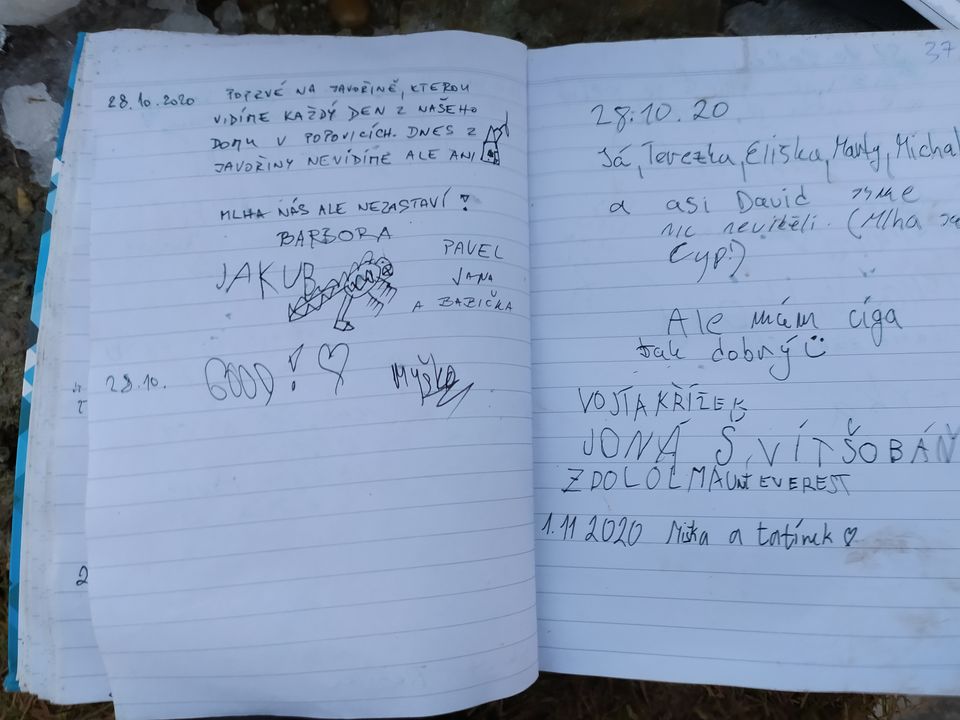 28.10.2020 POPRVÉ NA JAVOŘINĚ, KTEROU
VIDÍME KAŽDÝ DEN Z NAŠEHO
DOMU V POPOVICÍCH. DNES Z
JAVOŘINY NEVIDÍME ALE ANI
MLHA NÁS ALE NEZASTAVÍ!
BARBORA
JAKUB
PAVEL
JANA
A BABIČKA
28.10. GOOD! ♡ Myška
2
37
28.10.20
Já, Terezka, Eliška, Marty, Michal
a asi David jsme
nic neviděli. (Mlha
Ale mám cíga
tak dobrý
VOJTA KŘÍŽEK
JONÁŠ, VÍT ŠOBÁŇ
ZDOLOLMAUNT EVEREST
1.11 2020 Miška a tatínek ♡